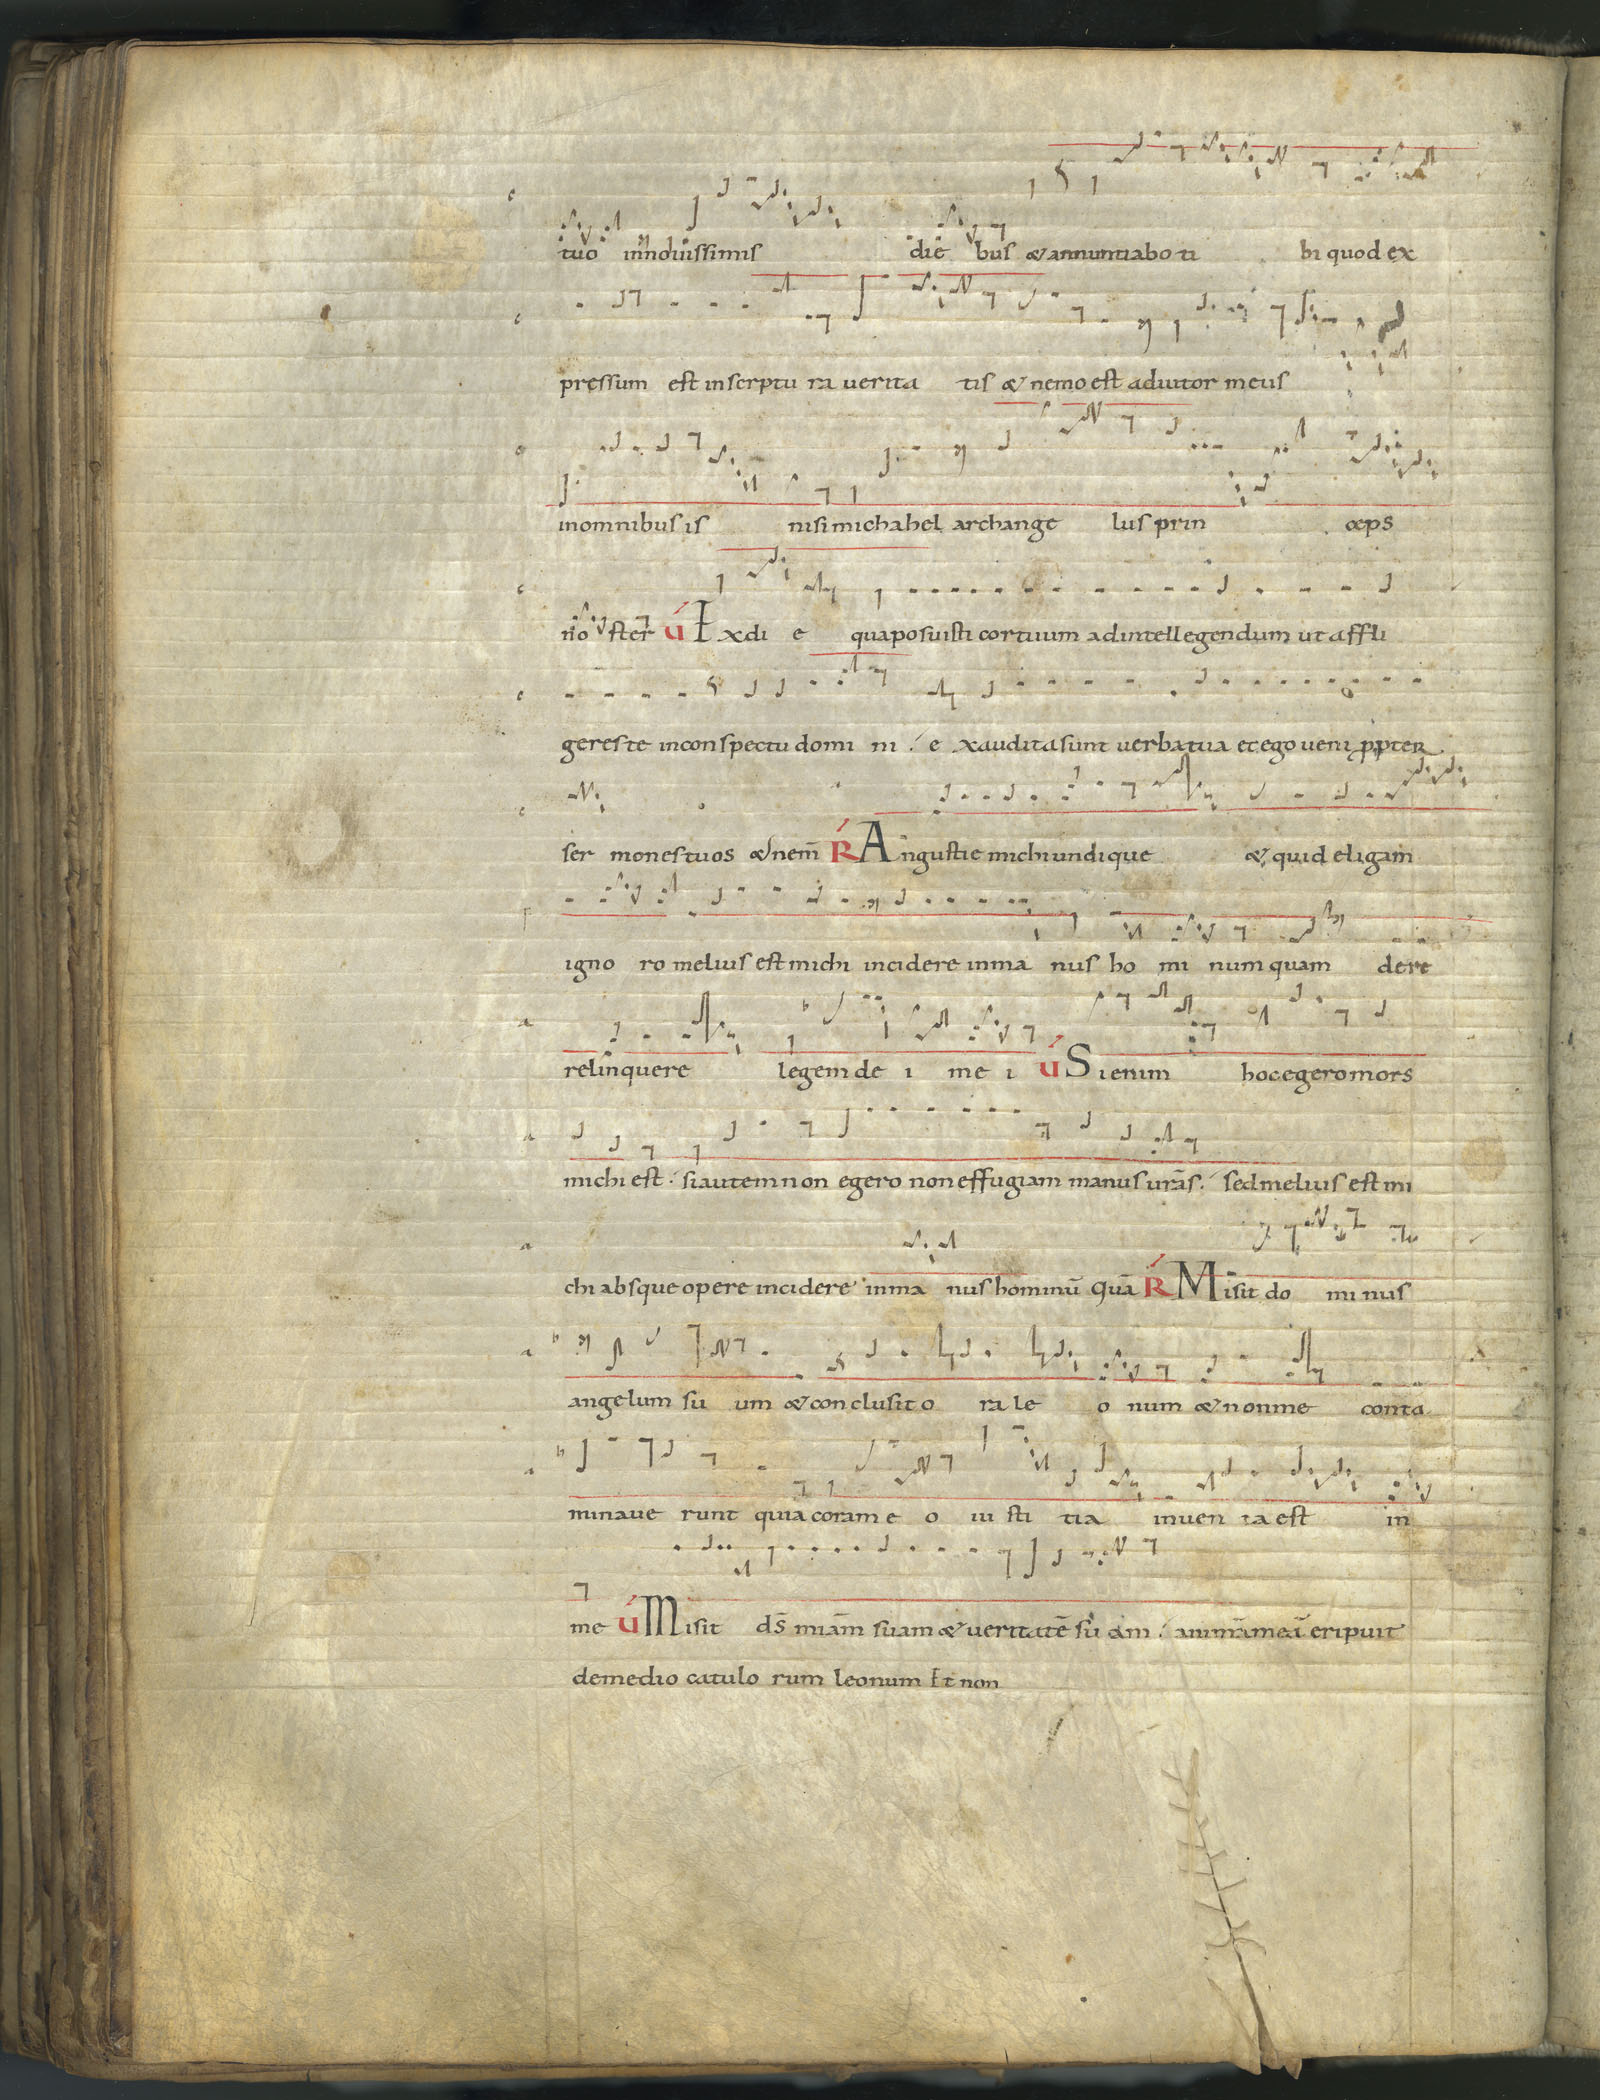 tuo in nouissimis die bus & annuntiabo ti bi quod ex
pressum est in scriptu ra uerita tis & nemo est adiutor meus
in omnibus is nisi michahel archange lus prin ceps
no ster V́ Exdi e qua posuisti cor tuum ad intellegendum ut affli
gereste in conspectu domi ni. e xaudita sunt uerba tua et ego ueni ꝓpter
ser mones tuos & nem̄ Ŕ Angustie michi undique & quid eligam
igno ro melius est michi incidere in ma nus ho mi num quam dere
relinquere legem de i me i V́ Si enim hoc egero mors
michi est. si autem non egero non effugiam manus urās. sed melius est mi
chi absque opere incidere in ma nus hominū Quā Ŕ Misit do mi nus
angelum su um & conclusit o ra le o num & non me conta
minaue runt quia coram e o iu sti tia inuen ta est in
me V́ Misit ds̄ miām suam & ueritatē su am. animām eā eripuit
de medio catulo rum leonum Et non